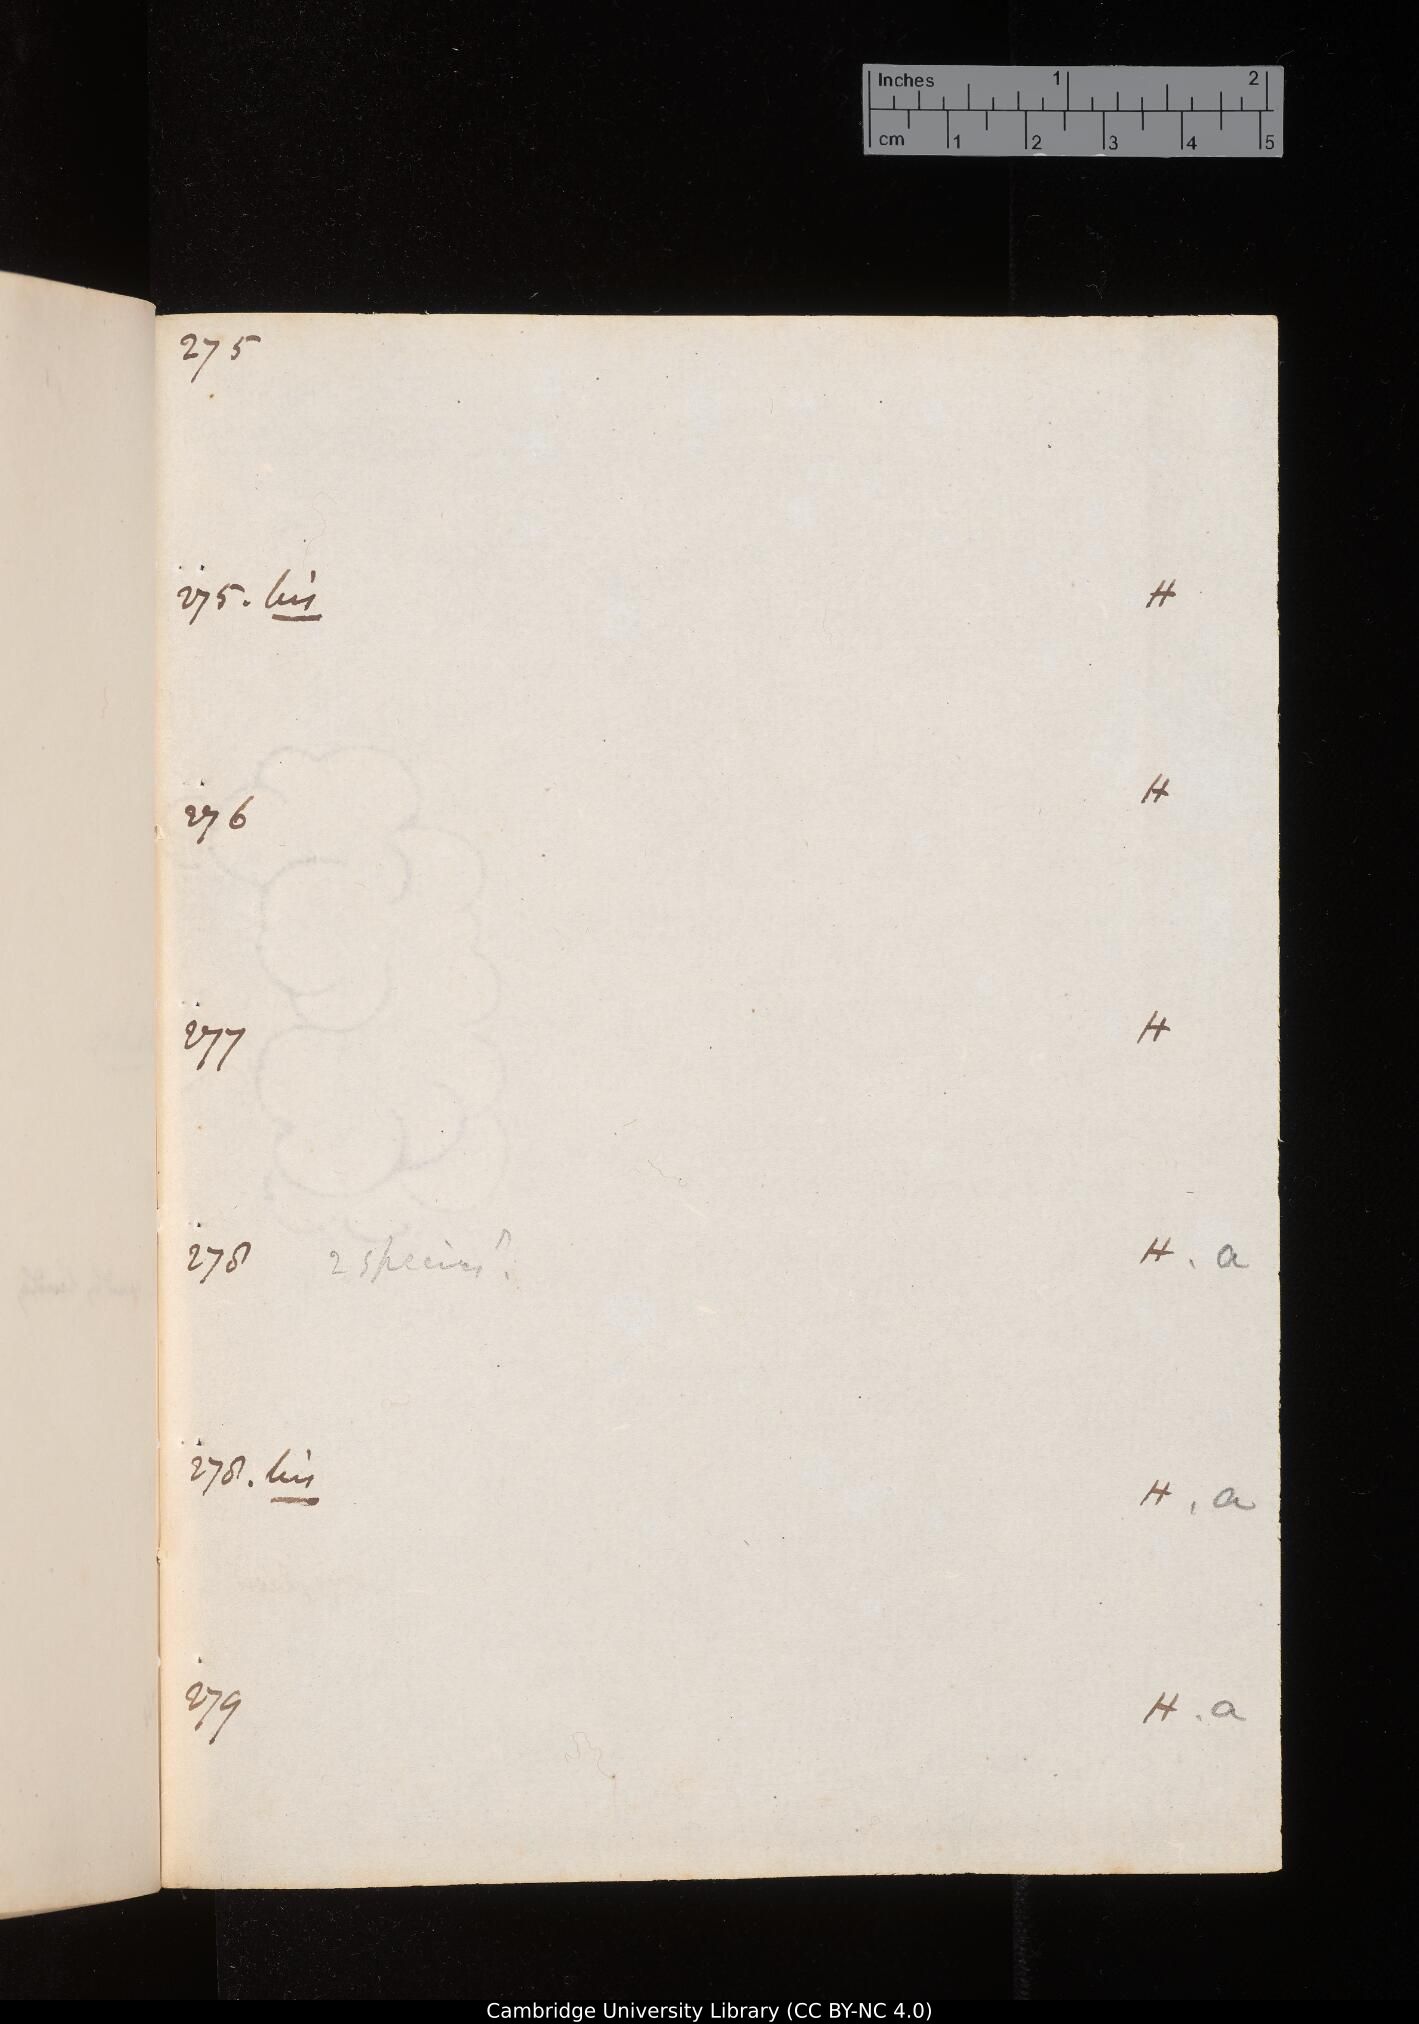 Inches 1 2
cm 1 2 3 4 5
275
275. bis H
276 H
277 H
278 2 species? H . a
278. bis H . a
279 H . a
Cambridge University Library (CC BY-NC 4.0)